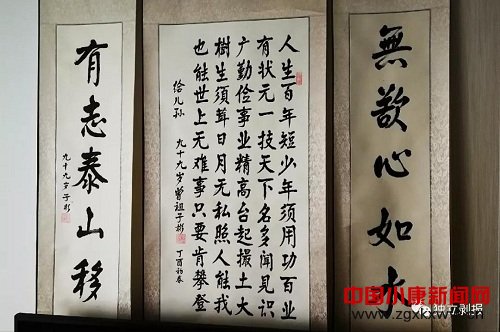 無欲心如水
人生百年短少年须用功百业
有状元一技天下名多闻见识
广勤俭事业精高台起撮土大
樹生须茸日月无私照人能我
也能世上无难事只要肯攀登
给儿孙
九十九岁曾祖子彬
丁酉初春
有志泰山移
九十九岁子彬
中国小康新闻网